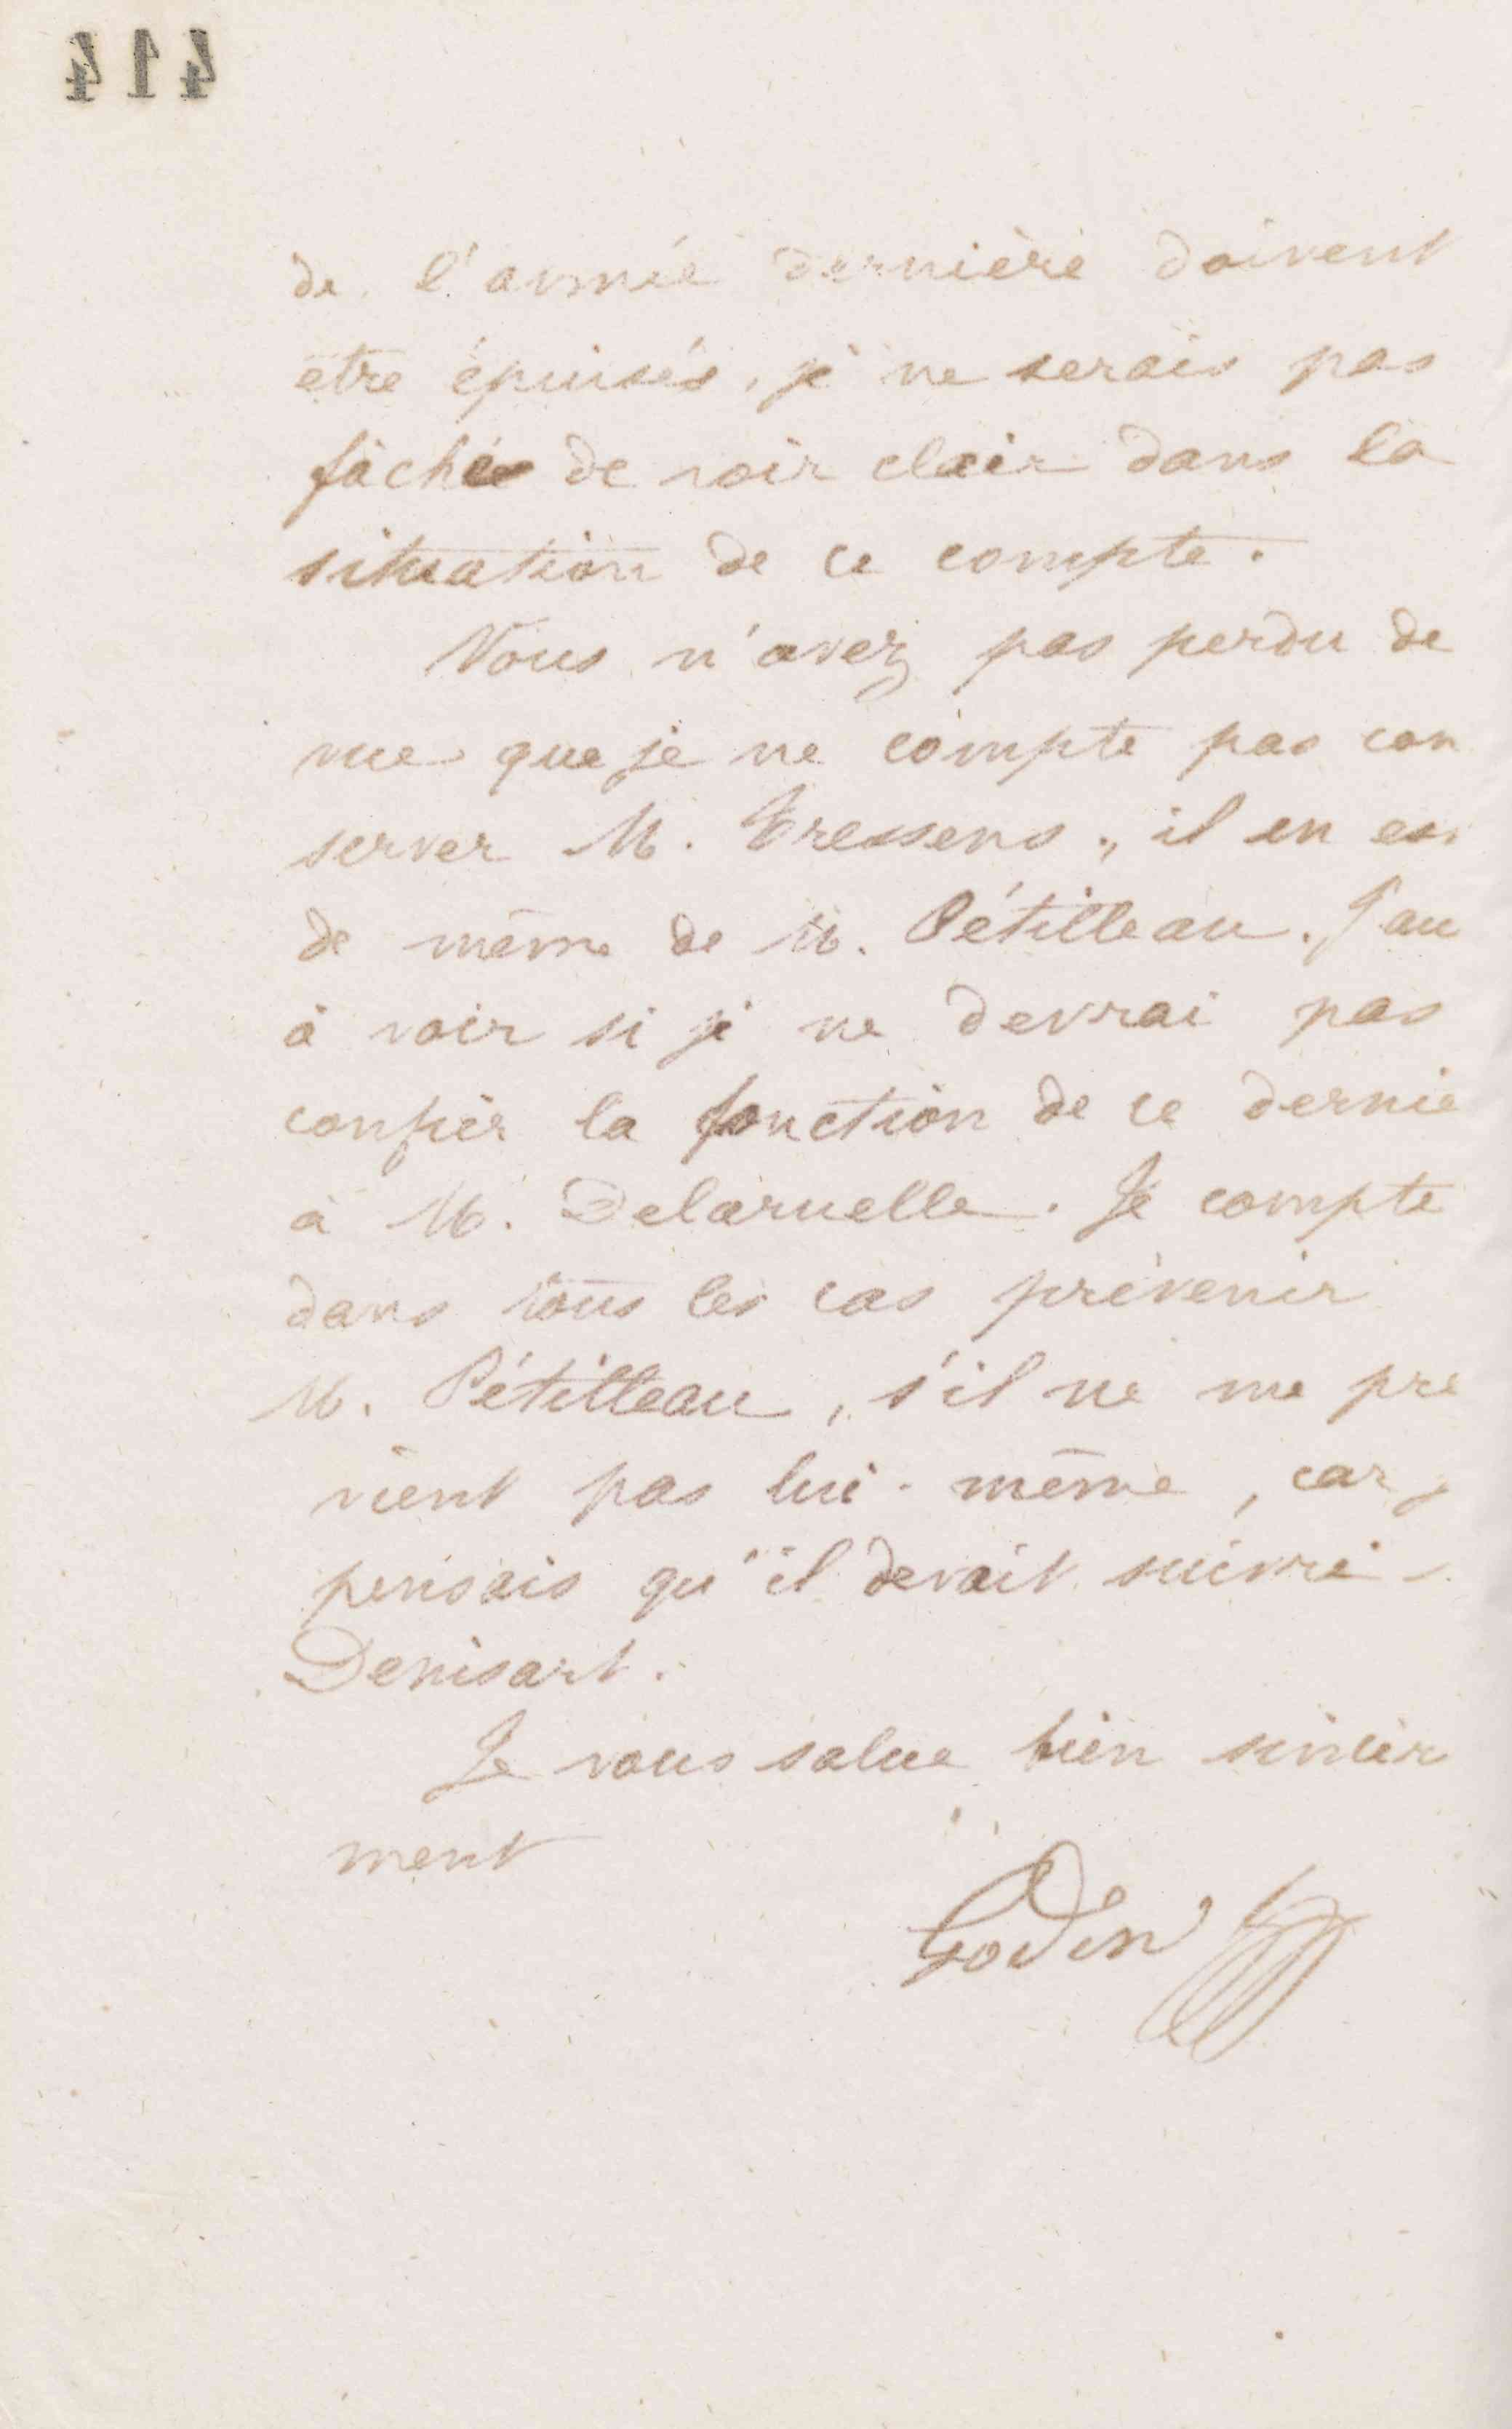 414
de l'année dernière doivent
être épuisés, je ne serais pas
fâché de voir clair dans la
situation de ce compte.
Vous n'avez pas perdu de
vue que je ne compte pas con
server M. Gressens, il en es
de même de M. Pétilleau. J'au
à voir si je ne devrai pas
confier la fonction de ce dernie
à M. Delaruelle. Je compte
dans tous les cas prévenir
M. Pétilleau, s'il ne me pré
vient pas lui-même, car j
pensais qu'il devait suivre
Denisart.
Je vous salue bien sincèr
ment
Godin